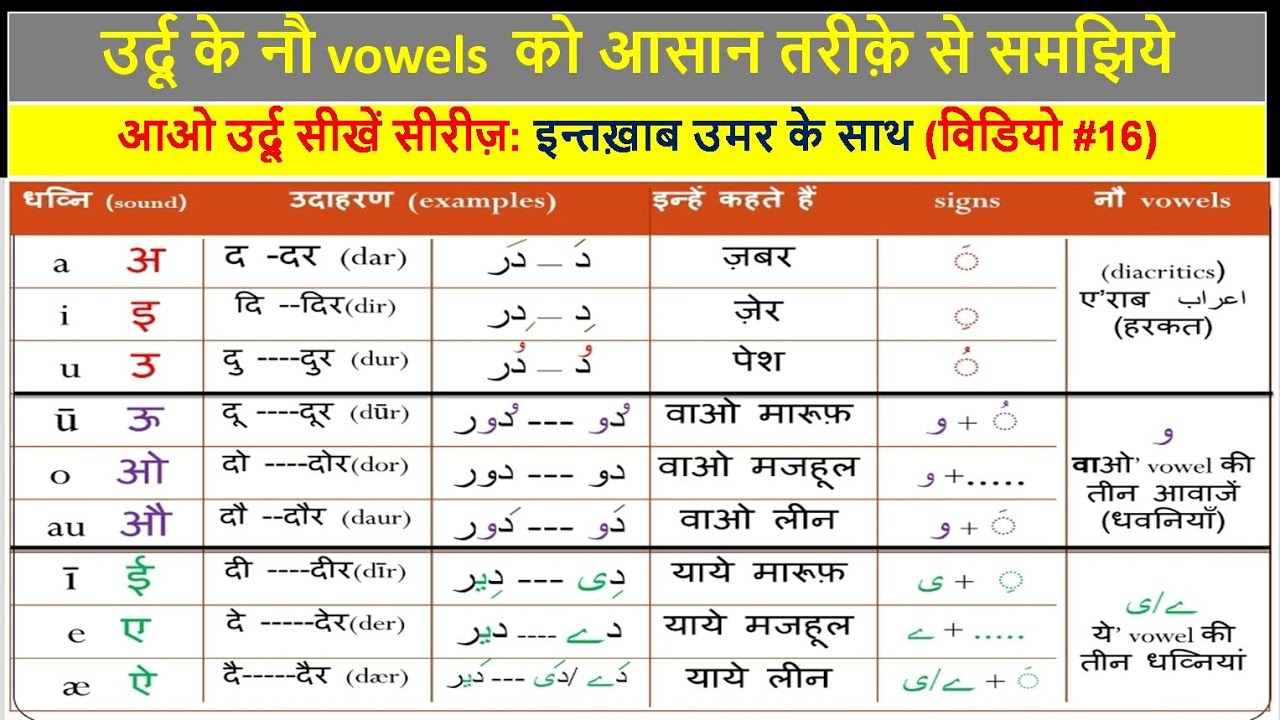 उर्दू के नौ vowels को आसान तरीक़े से समझिये
आओ उर्दू सीखें सीरीज़: इन्तख़ाब उमर के साथ (विडियो #16)
धव्नि (sound) उदाहरण (examples) इन्हें कहते हैं signs नौ vowels
a अ द -दर (dar) دَ – دَر ज़बर ◌َ
i इ दि --दिर(dir) دِ – دِر ज़ेर ◌ِ
u उ दु ----दुर (dur) دُ – دُر पेश ◌ُ
(diacritics)
ए’राब اعراب
(हरकत)
ū ऊ दू ----दूर (dūr) دُو --- دُور वाओ मारूफ़ و + ◌ُ
o ओ दो ----दोर(dor) دو --- دور वाओ मजहूल و +.....
au औ दौ --दौर (daur) دَو --- دَور वाओ लीन و + ◌َ
و
वाओ’ vowel की
तीन आवाजें
(धवनियाँ)
ī ई दी ----दीर(dīr) دِی --- دِیر याये मारूफ़ ی + ◌ِ
e ए दे -----देर(der) دے ---- دیر याये मजहूल ے + .....
æ ऐ दै-----दैर (dær) دَے /دَی --- دَیر याये लीन ے/ی + ◌َ
ے/ی
ये’ vowel की
तीन धव्नियां